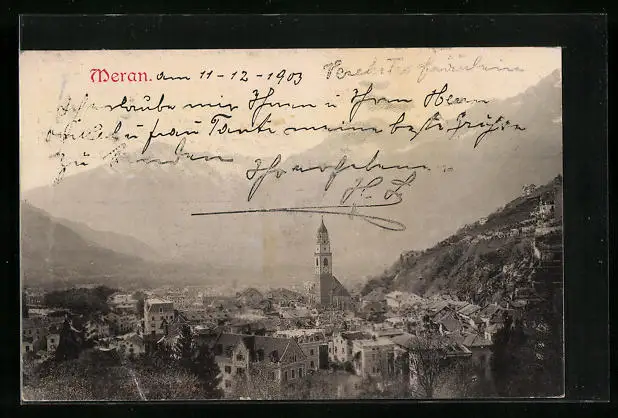 Meran. am 11-12-1903 Verehrtes Fräulein
erlaube mir Ihnen u Ihren Herrn
u Frau Tante meine besten Grüße
zu senden Ihr ergebener